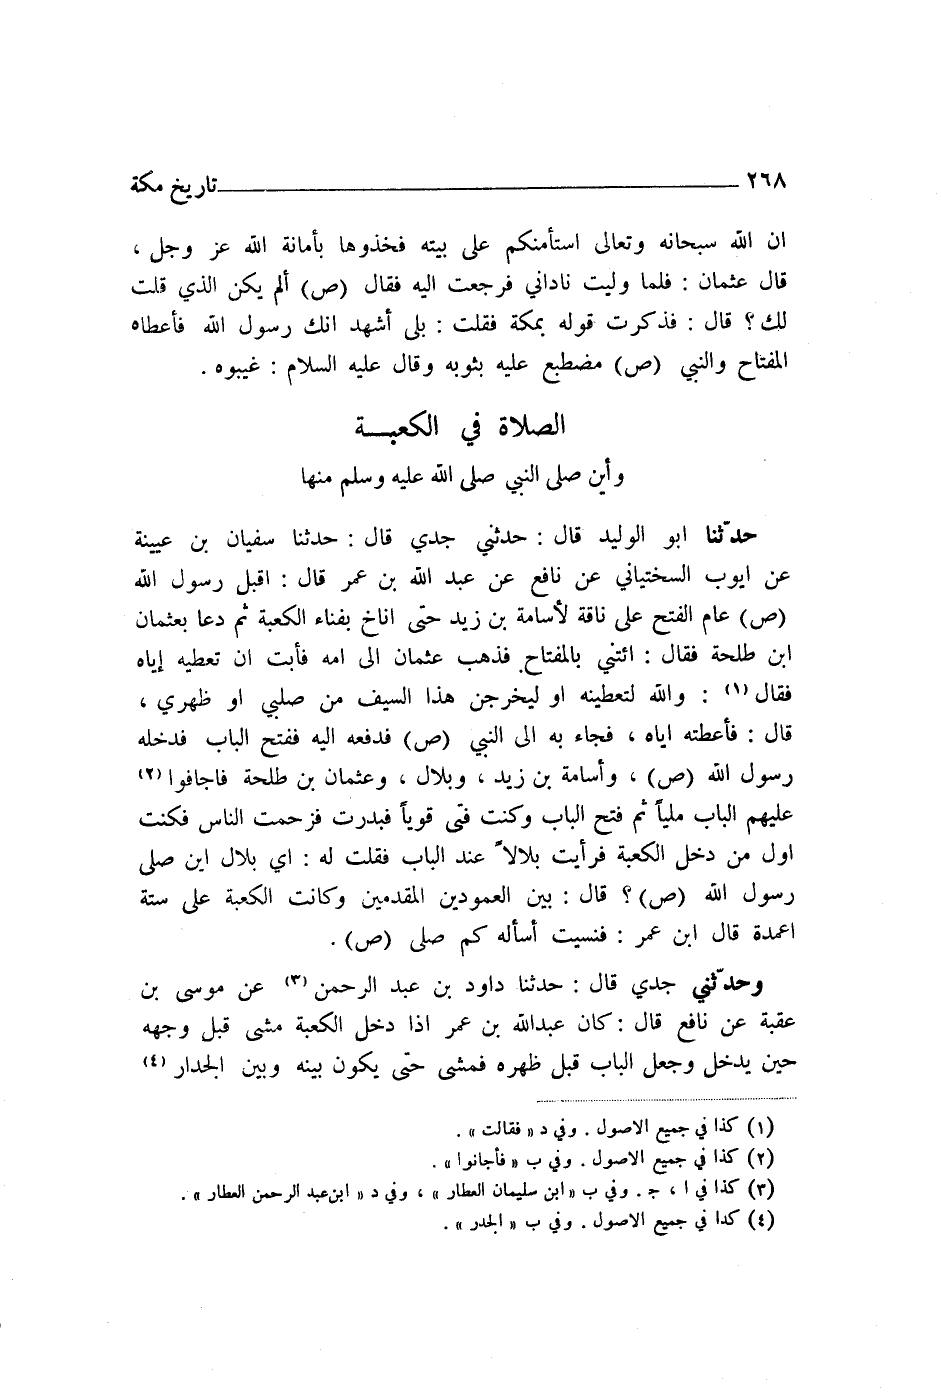 ٢٦٨ تاريخ مكة
ان الله سبحانه وتعالى استأمنكم على بيته فخذوها بأمانة الله عز وجل ،
قال عثمان : فلما وليت ناداني فرجعت اليه فقال (ص) ألم يكن الذي قلت
لك ؟ قال : فذكرت قوله بمكة فقلت : بلى أشهد انك رسول الله فأعطاه
المفتاح والنبي (ص) مضطبع عليه بثوبه وقال عليه السلام : غيبوه .
الصلاة في الكعبــة
وأين صلى النبي صلى الله عليه وسلم منها
حدّثنا ابو الوليد قال : حدثني جدي قال : حدثنا سفيان بن عيينة
عن ايوب السختياني عن نافع عن عبد الله بن عمر قال : اقبل رسول الله
(ص) عام الفتح على ناقة لأسامة بن زيد حتى اناخ بفناء الكعبة ثم دعا بعثمان
ابن طلحة فقال : ائتني بالمفتاح فذهب عثمان الى امه فأبت ان تعطيه إياه
فقال (١) : والله لتعطينه او ليخرجن هذا السيف من صلبي او ظهري ،
قال : فأعطته اياه ، فجاء به الى النبي (ص) فدفعه اليه ففتح الباب فدخله
رسول الله (ص) ، وأسامة بن زيد ، وبلال ، وعثمان بن طلحة فاجافوا (٢)
عليهم الباب ملياً ثم فتح الباب وكنت فتى قوياً فبدرت فزحمت الناس فكنت
اول من دخل الكعبة فرأيت بلالاً عند الباب فقلت له : اي بلال اين صلى
رسول الله (ص) ؟ قال : بين العمودين المقدمين وكانت الكعبة على ستة
اعمدة قال ابن عمر : فنسيت أسأله كم صلى (ص) .
وحدّثني جدي قال : حدثنا داود بن عبد الرحمن (٣) عن موسى بن
عقبة عن نافع قال : كان عبدالله بن عمر اذا دخل الكعبة مشى قبل وجهه
حين يدخل وجعل الباب قبل ظهره فمشى حتى يكون بينه وبين الجدار (٤)
(١) كذا في جميع الاصول . وفي د « فقالت » .
(٢) كذا في جميع الاصول . وفي ب « فأجانوا » .
(٣) كذا في ا ، ج . وفي ب « ابن سليمان العطار » ، وفي د « ابن عبد الرحمن العطار » .
(٤) كدا في جميع الاصول . وفي ب « الجدر » .